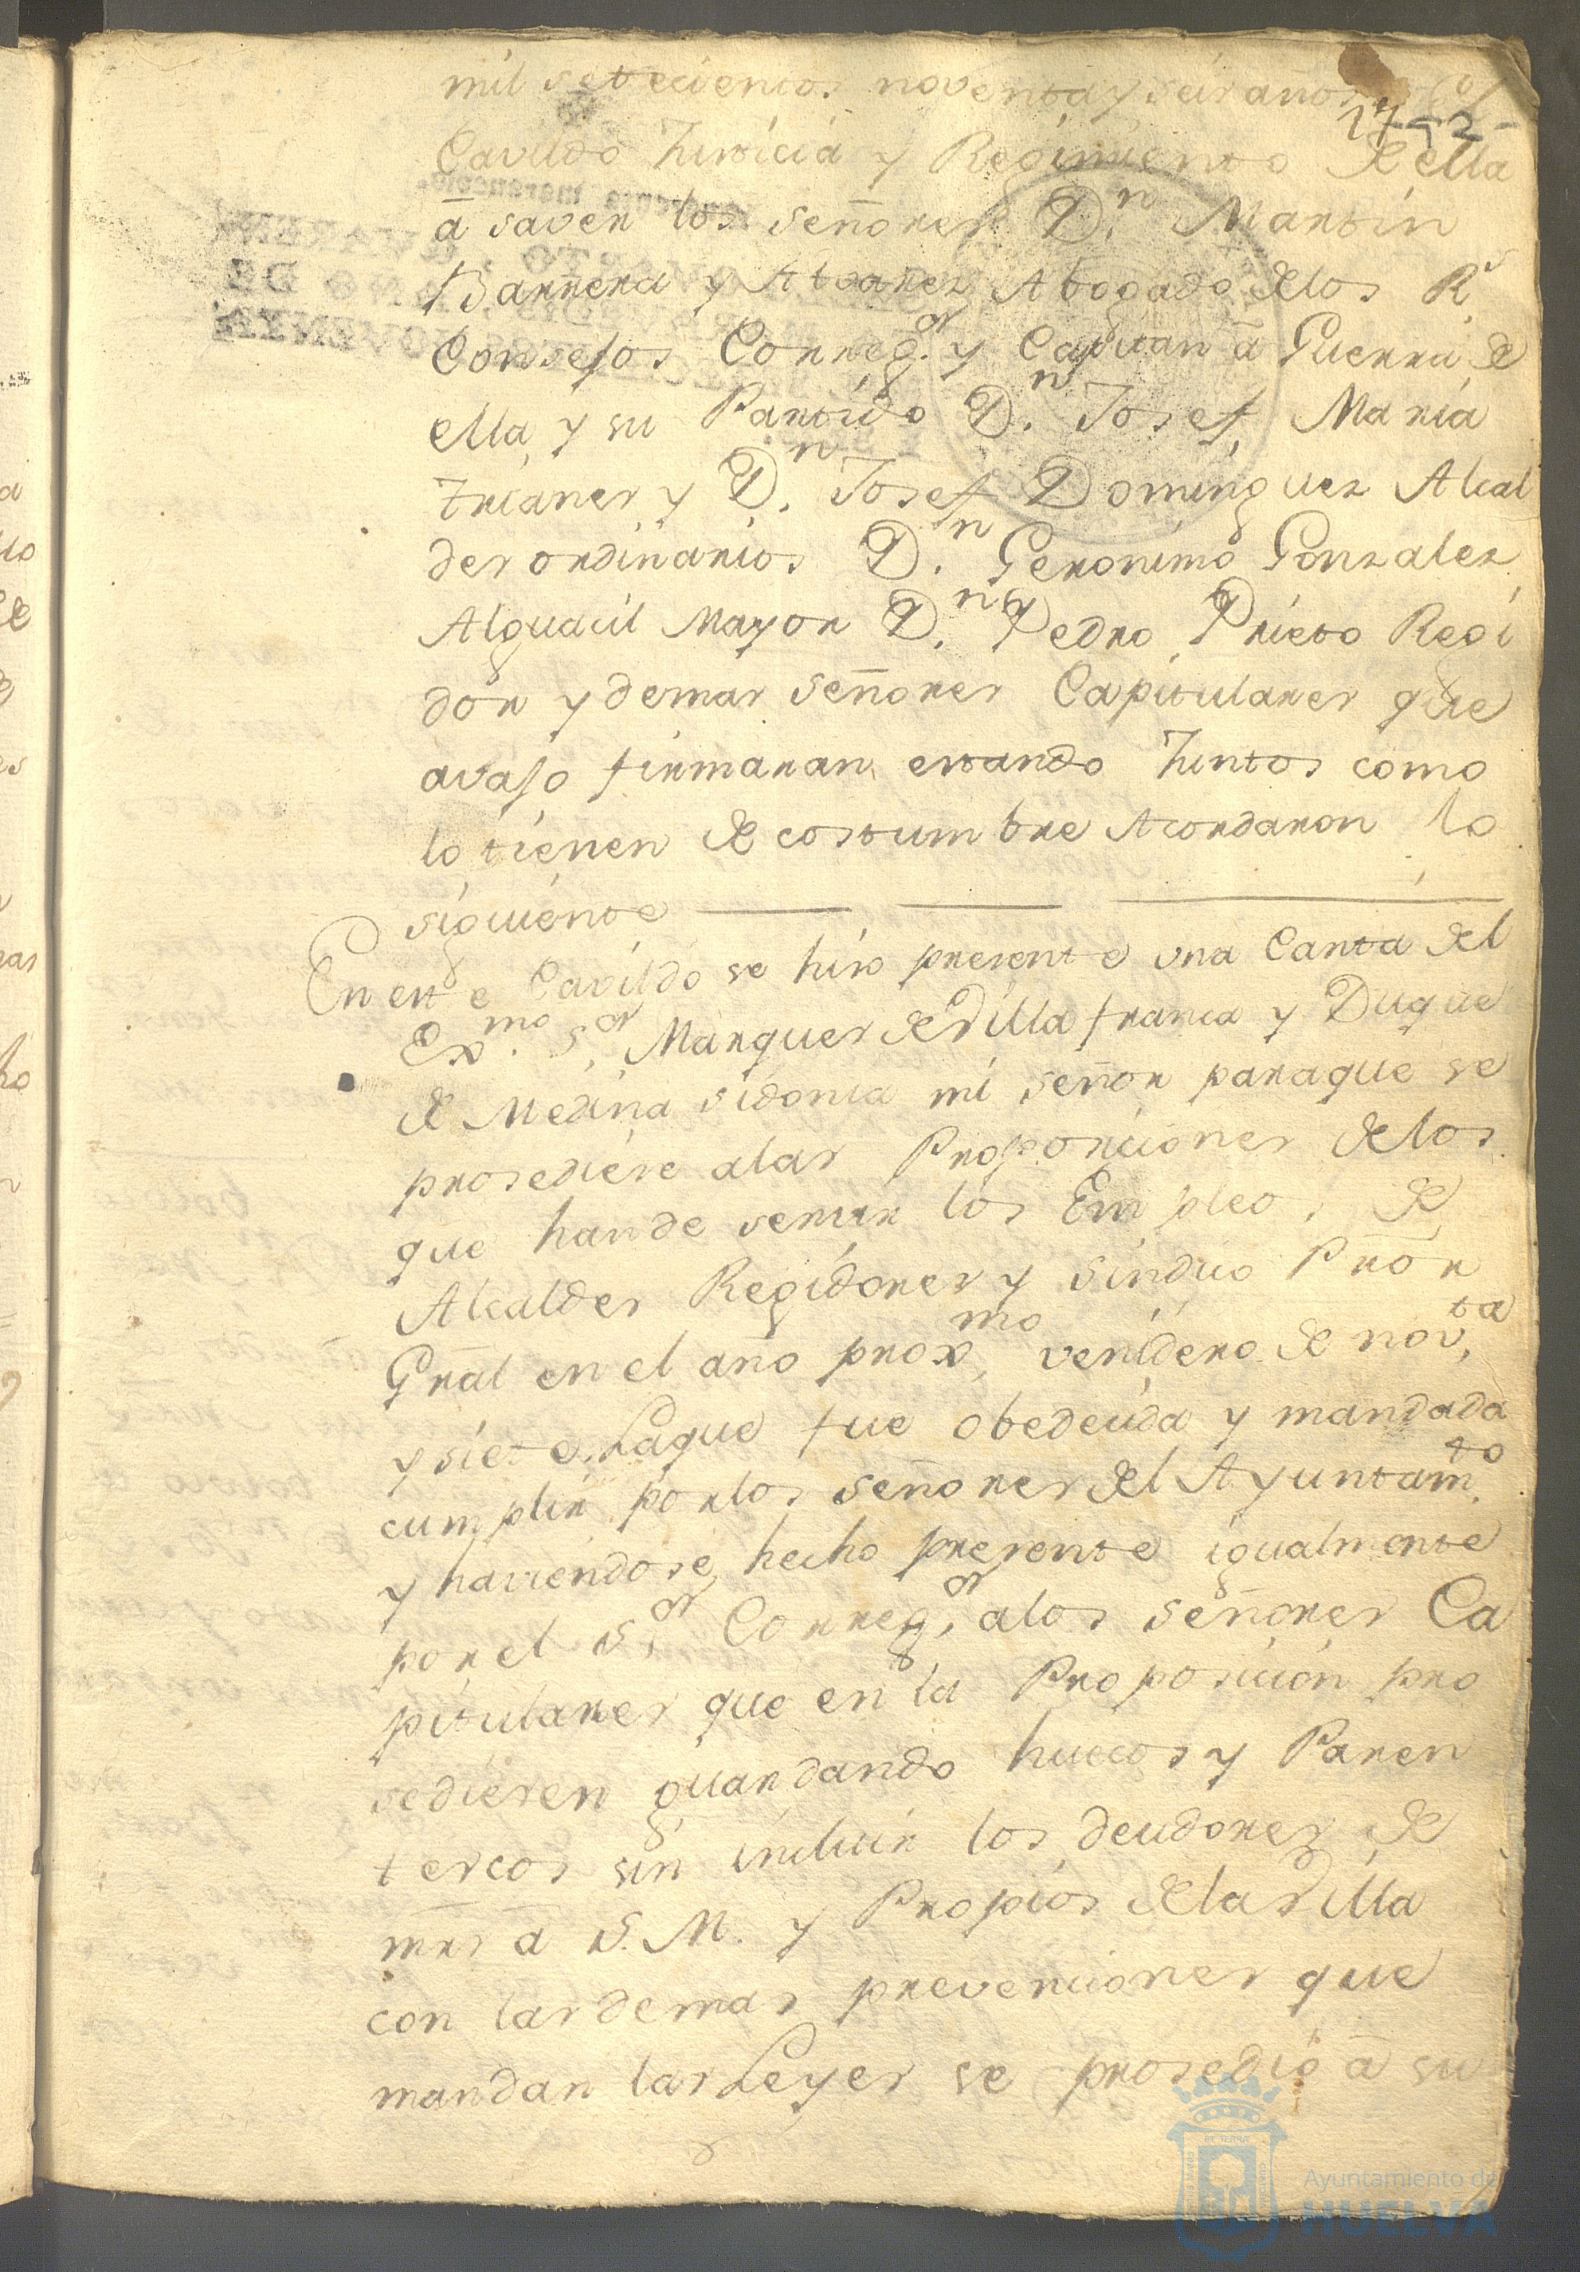 mil setecientos noventa y seis años el
17-2-
Cavildo Justicia y Regimiento de ella
â saver los señores D.n Martin
Barrera y Alvarez Abogado delos R.s
Consejos Correg.or y Capitan â Guerra de
ella, y su Partido D.n Josef Maria
Trianes y D.n Josef Dominguez Alcal
des ordinarios D.n Geronimo Gonzalez
Alguacil Mayor D.n Pedro Prieto Regi
dor y demas señores Capitulares que
avajo firmaran estando Juntos como
lo tienen de costumbre Acordaron lo
siguiente
En este Cavildo se hiso presente una Carta del
Ex.mo S.or Marques de Villa franca y Duque
de Medina sidonia mi señor paraque se
prosediese alas Proporciones delos
que hande servir los Empleos, de
Alcaldes Regidores y sindico Prôr
Gral en el año prox.mo venidero de nov.ta
y siete. Laque fue obedecida y mandada
cumplir porlos señores del Ayuntam.to
y haviendose hecho presente igualmente
por el S.or Correg.or alos señores Ca
pitulares que en la Proposicion pro
sedieren guardando huecos y Paren
tercos sin incluir los deudores de
mrs â S. M. y Propios dela Villa
con las demas prevenciones que
mandan las Leyes se prosedio â su
Ayuntamiento de
HUELVA